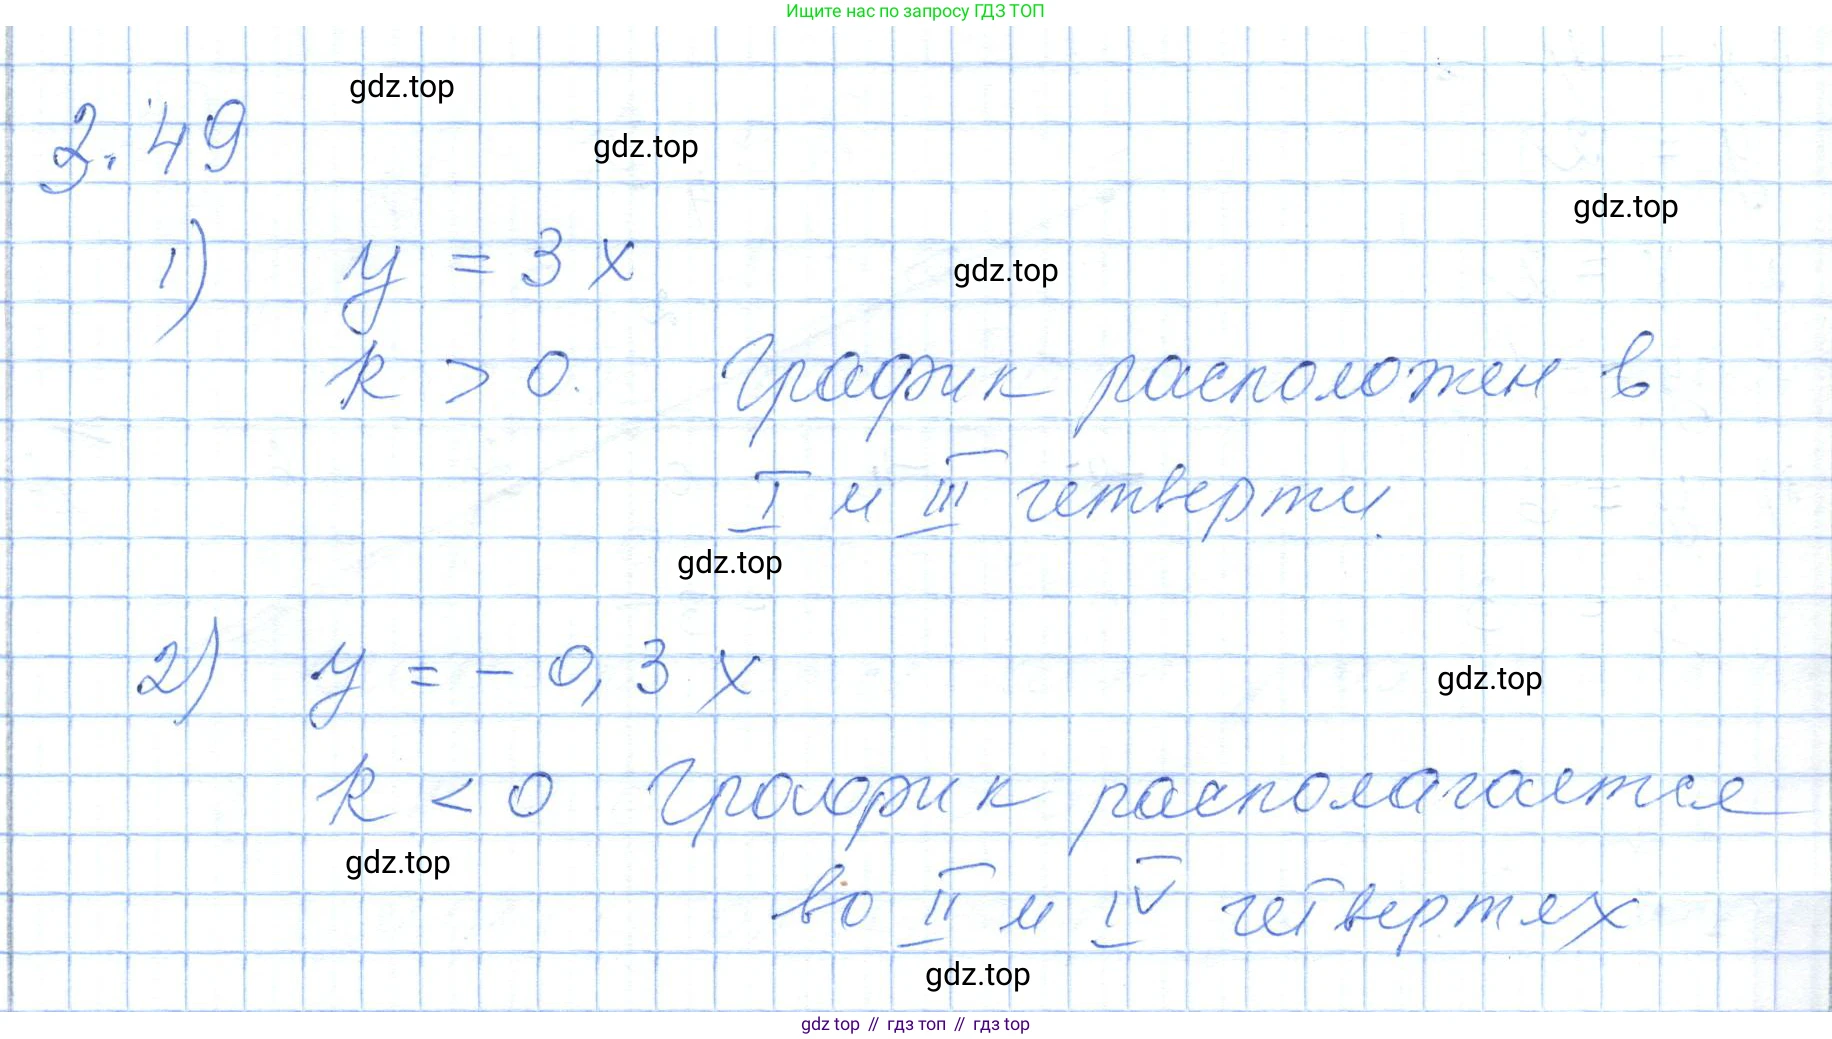 Ищите нас по запросу ГДЗ ТОП
gdz.top
3.49
gdz.top
gdz.top
1) y = 3x
gdz.top
k > 0. График расположен в
I и III четверти.
gdz.top
2) y = - 0,3 x
gdz.top
k < 0 График располагается
gdz.top
во II и IV четвертях
gdz.top
gdz top // гдз топ // гдз top